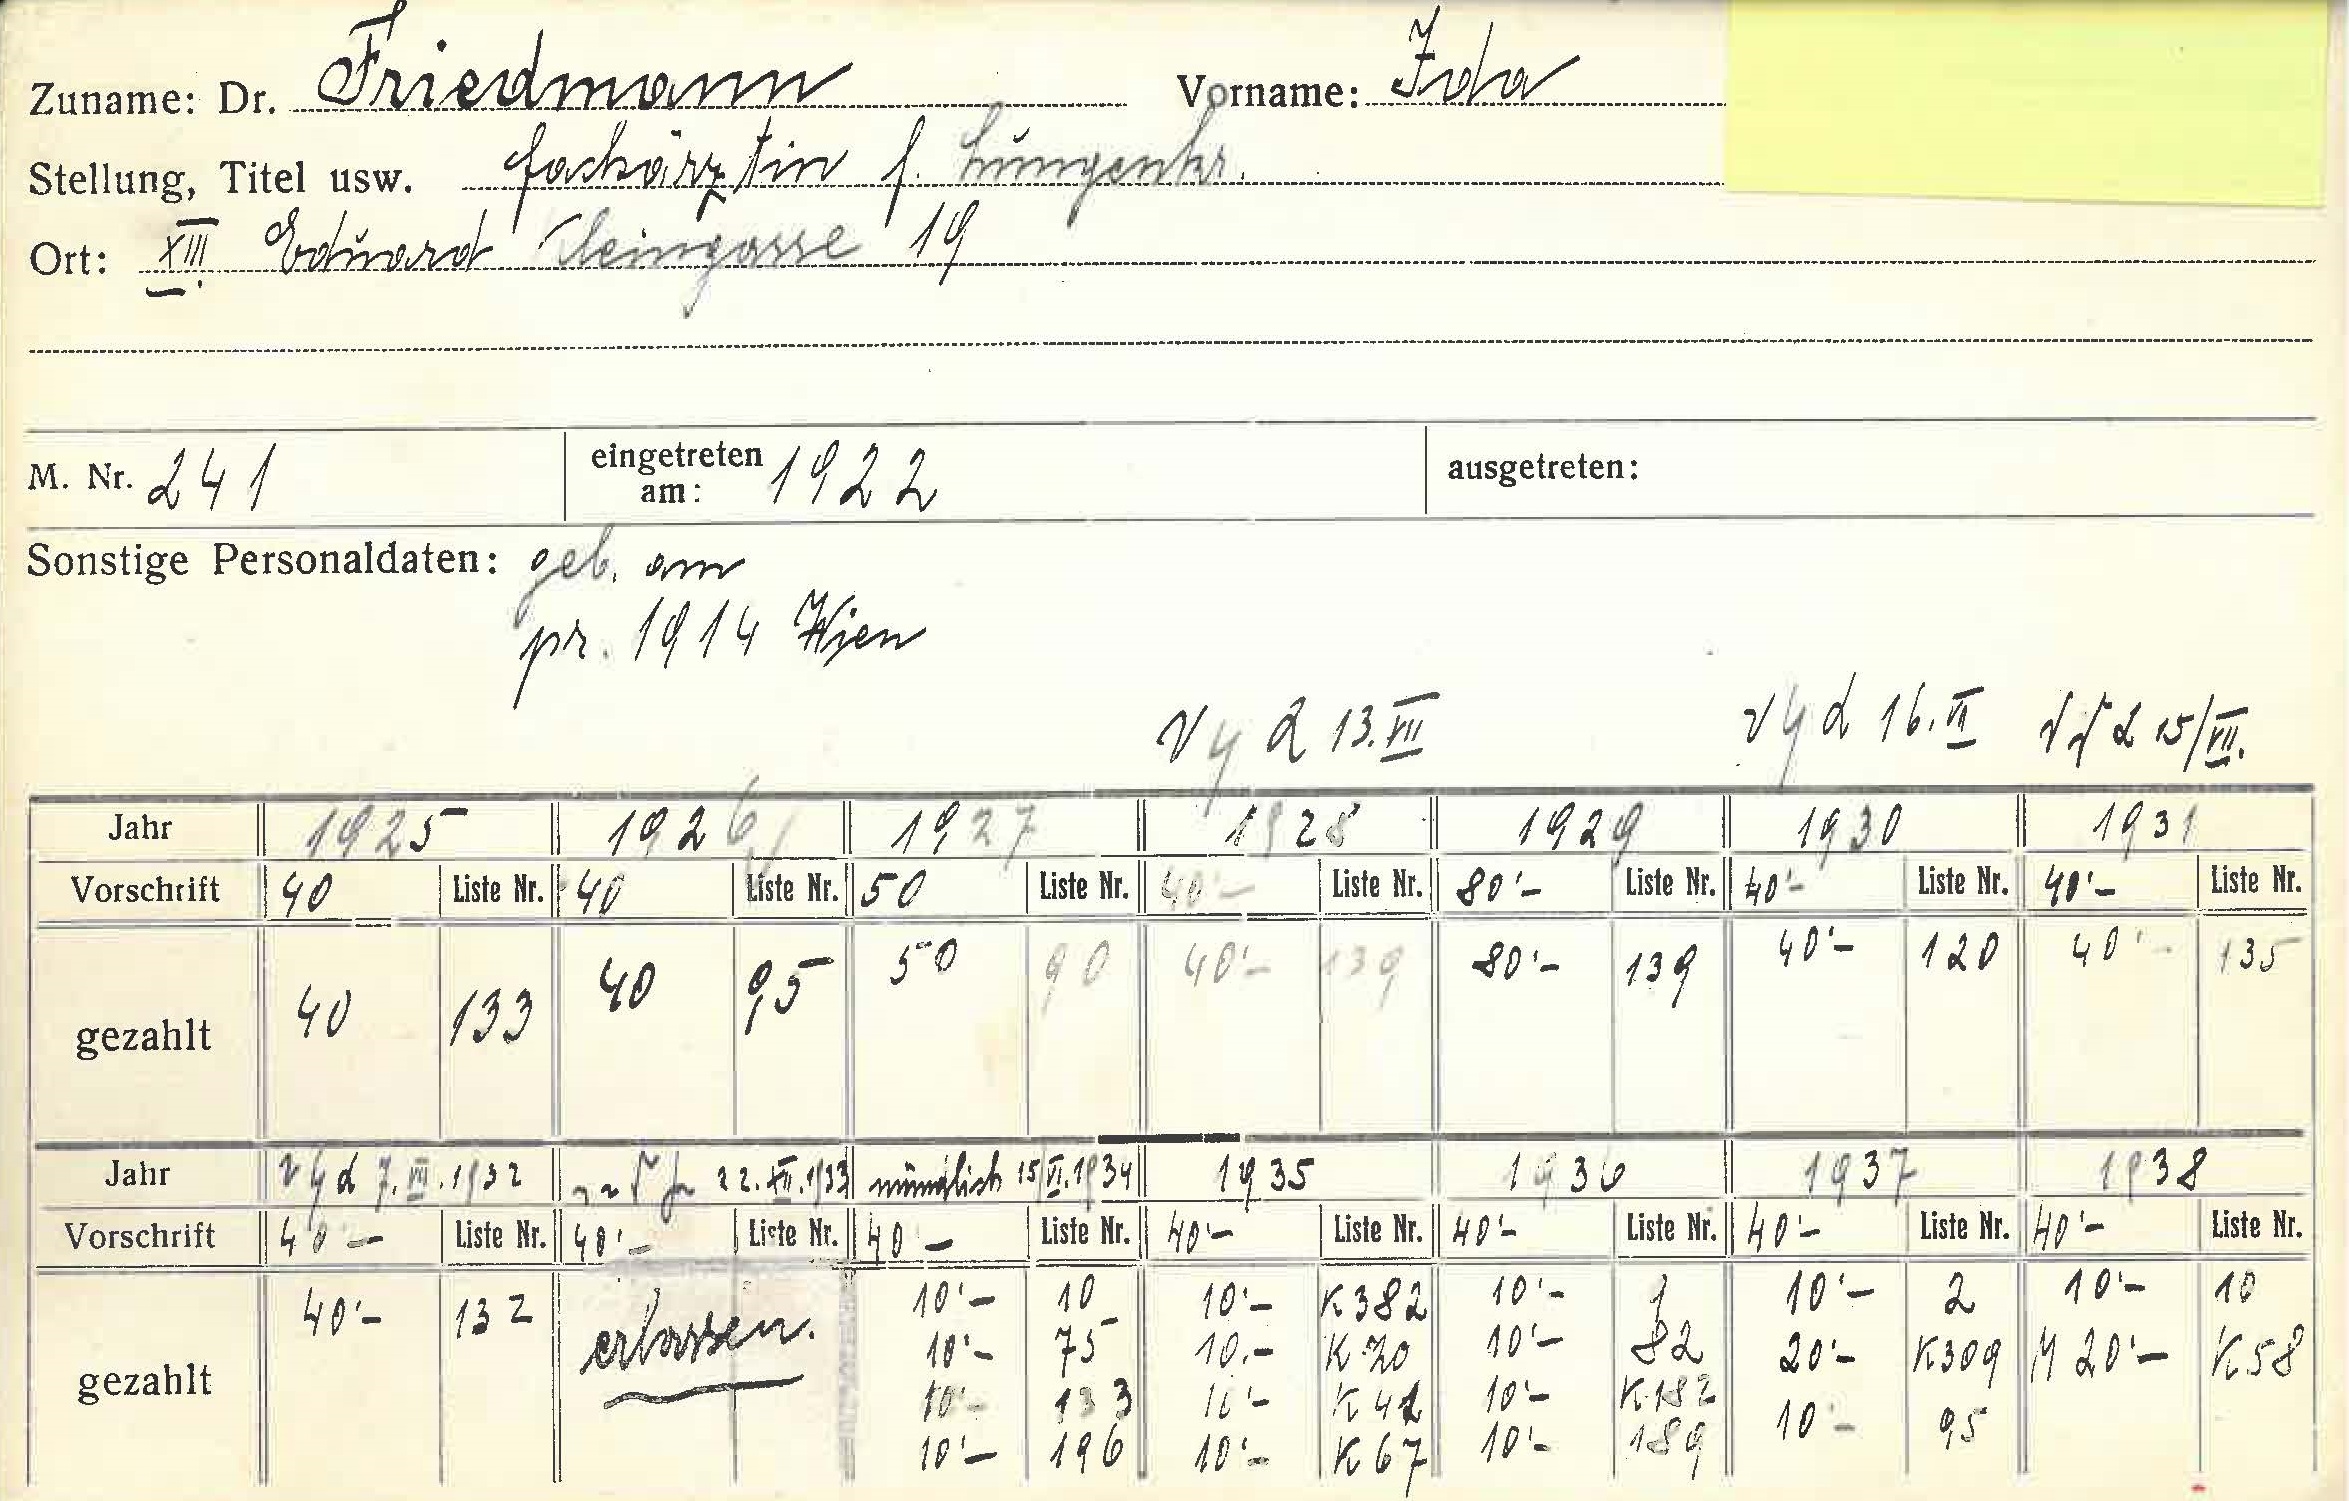 Zuname: Dr. Friedmann Vorname: Ida
Stellung, Titel usw. Fachärztin f. Lungenkr.
Ort: XIII. Eduard Kleingasse 19
M. Nr. 241 eingetreten am: 1922 ausgetreten:
Sonstige Personaldaten: geb. am
pr. 1914 Wien
13. VII 16. VI 15/VII.
Jahr 1925 1926 1927 1928 1929 1930 1931
Vorschrift 40 Liste Nr. 40 Liste Nr. 50 Liste Nr. 40'- Liste Nr. 80'- Liste Nr. 40'- Liste Nr. 40'- Liste Nr.
gezahlt 40 133 40 95 50 90 40'- 139 80'- 139 40'- 120 40'- 135
Jahr 1932 22. XII. 1933 mündlich 15/VI. 1934 1935 1936 1937 1938
Vorschrift 40'- Liste Nr. 40'- Liste Nr. 40 - Liste Nr. 40'- Liste Nr. 40'- Liste Nr. 40'- Liste Nr. 40'- Liste Nr.
gezahlt 40'- 132 erlassen. 10'- 10 10'- K382 10'- 1 10'- 2 10'- 10
10'- 75 10.- K 70 10'- 82 20'- K309 M 20'- K 58
10'- 133 10'- K 41 10'- K 182 10'- 95
10'- 196 10'- K 67 10'- 189